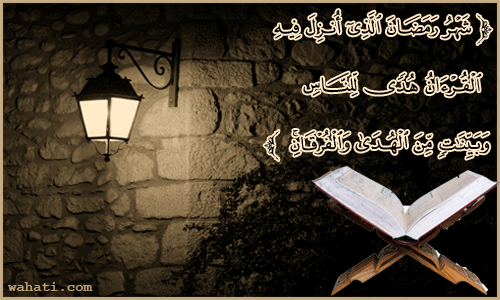 ﴿ شَهْرُ رَمَضَانَ ٱلَّذِىٓ أُنزِلَ فِيهِ
ٱلْقُرْءَانُ هُدًى لِّلنَّاسِ
وَبَيِّنَٰتٍ مِّنَ ٱلْهُدَىٰ وَٱلْفُرْقَانِ ۚ ﴾
wahati.com